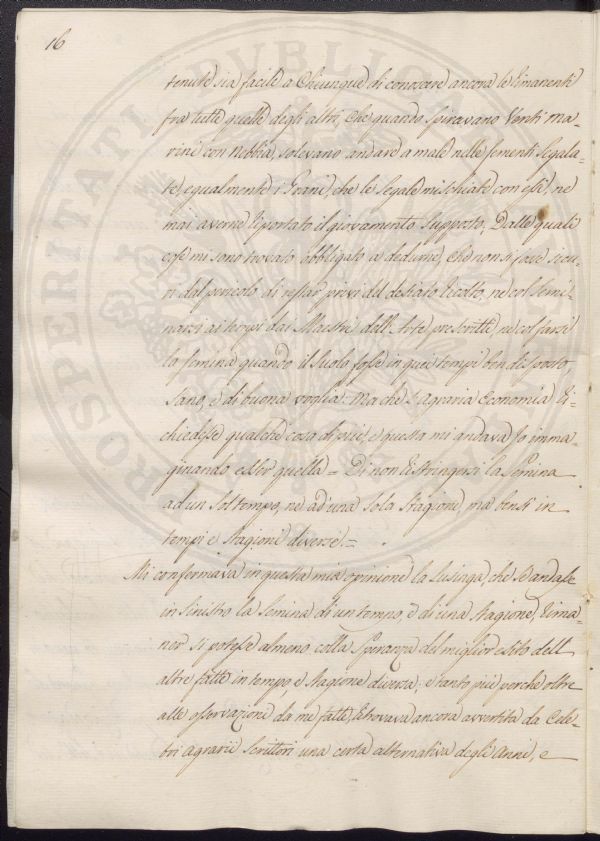 16
tenute sia facile a Chiunque di conoscere ancora le rimanenti
fra tutte quelle degli altri, che quando Spiravano Venti ma-
rini con Nebbia, solevano andare a male nelle sementi Segala-
te, egualmente i Grani, che le Segale mischiate con essi, ne
mai averne riportato il giovamento supposto. Dalle quali
cose mi sono trovato obbligato a dedurre, che non si fosse sicu-
ri dal pericolo di restar privi del desiato ricolto, ne col Semi-
narsi ai tempi dai Maestri dell'Arte prescritti, ne col farsi
la semina quando il Suolo fosse in quei tempi ben disposto,
Sano, e di buona voglia. Ma che l'Agraria Economia Ri-
chiedesse qualche cosa di più, e questa mi andava Io imma-
ginando esser quella = Di non Ristringersi la Semina
ad un Sol tempo, ne ad una sola Stagione, ma bensì in
tempi e Stagioni diverse. =
Mi confermava in questa mia opinione la Lusinga, che Se andasse
in Sinistro la Semina di un tempo, e di una Stagione, Rima-
ner si potesse almeno colla Speranza del miglior esito dell
altre fatte in tempo, e Stagione diversa, e tanto più perche oltre
alle osservazioni da me fatte, Ritrovava ancora avvertita da Cele-
bri Agrarii Scrittori una certa alternativa degli Anni, e
PROSPERITATI PUBLICAE